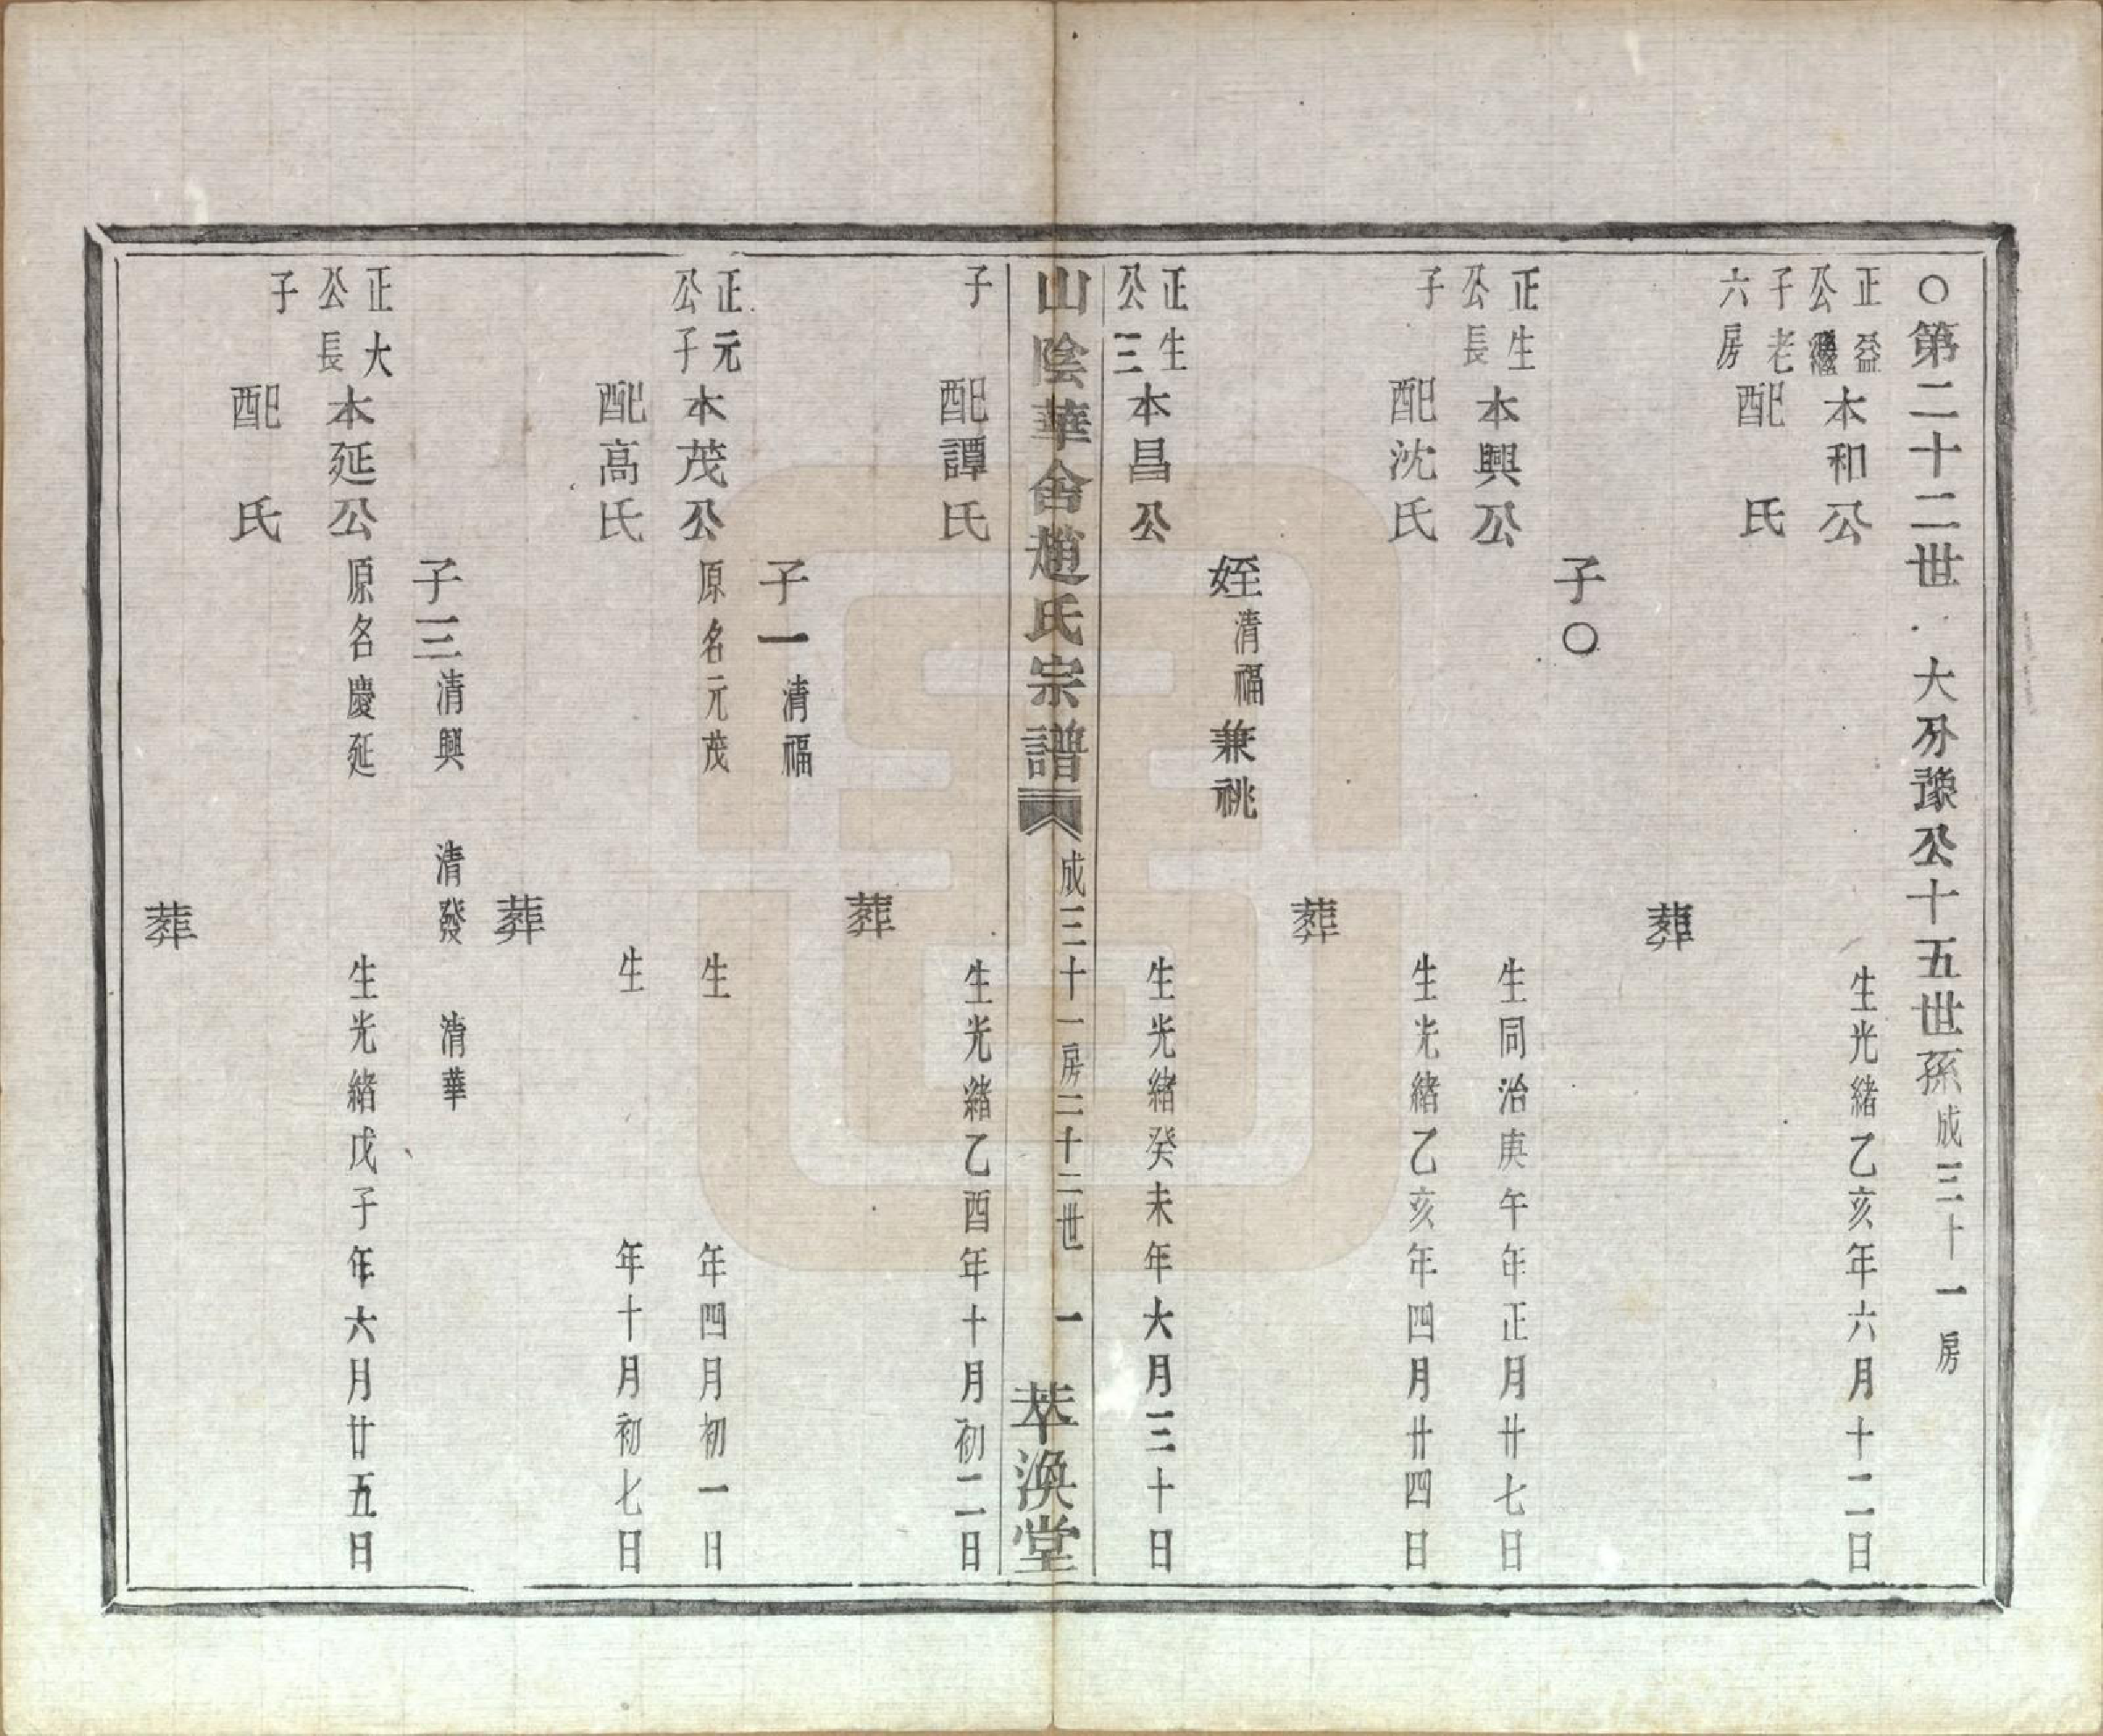 〇第二十二世 大分豫公十五世孫成三十一房
正益公繼子老六房
本和公 生光緒乙亥年六月十二日
配 氏
葬
子〇
正生公長子
本興公 生同治庚午年正月廿七日
配沈氏 生光緒乙亥年四月廿四日
葬
姪清福兼祧
正生公三子
本昌公 生光緒癸未年六月三十日
山陰華舍趙氏宗譜 成三十一房二十二世 一 萃渙堂
配譚氏 生光緒乙酉年十月初二日
葬
子一清福
正元公子
本茂公原名元茂 生 年四月初一日
配高氏 生 年十月初七日
葬
子三清興 清發 清華
正大公長子
本延公原名慶延 生光緒戊子年六月廿五日
配 氏
葬